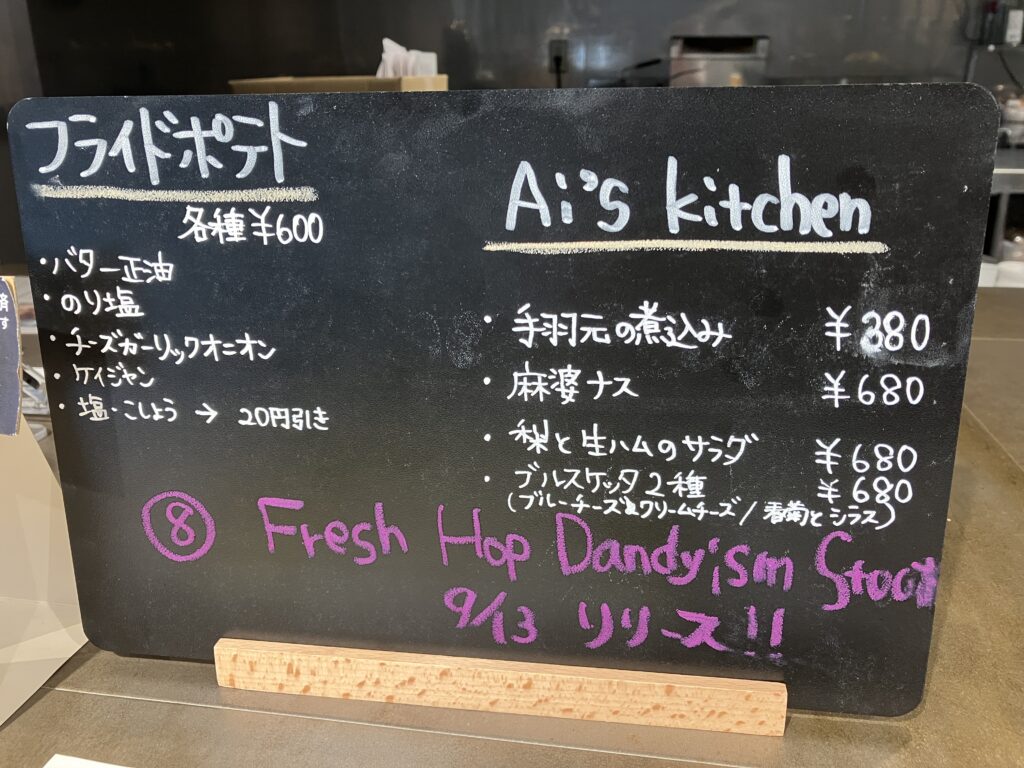 フライドポテト
各種￥600
・バター正油
・のり塩
・チーズガーリックオニオン
・ケイジャン
・塩・こしょう → 20円引き
Ai's kitchen
・手羽元の煮込み ￥380
・麻婆ナス ￥680
・梨と生ハムのサラダ ￥680
・ブルスケッタ2種 ￥680
(ブルーチーズ&クリームチーズ/春菊とシラス)
⑧ Fresh Hop Dandyism Stout
9/13 リリース!!
済
す